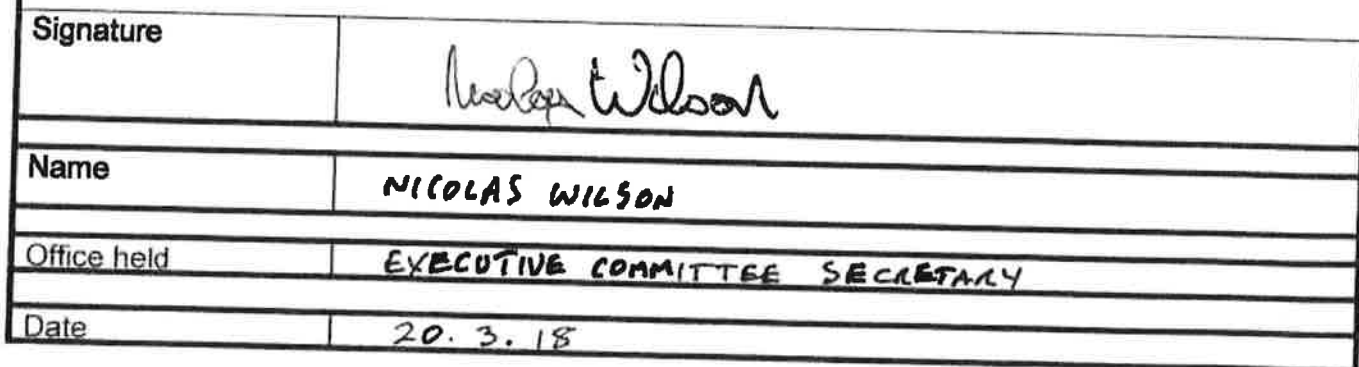 Signature Nicolas Wilson
Name NICOLAS WILSON
Office held EXECUTIVE COMMITTEE SECRETARY
Date 20. 3. 18